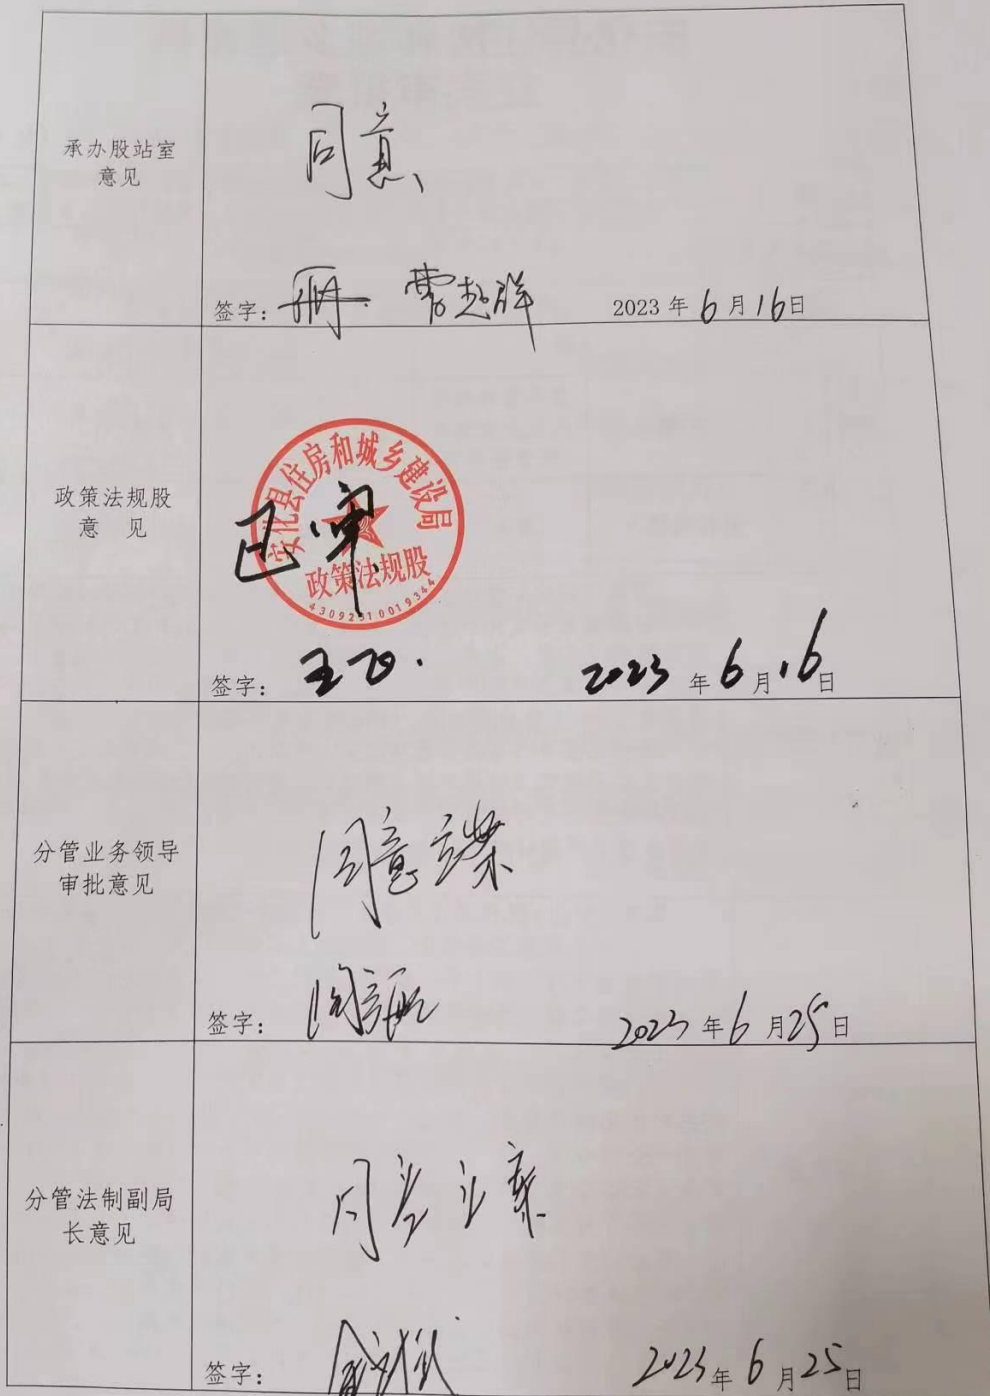 承办股站室
意见
同意
签字： 曹赴群 2023年6月16日
政策法规股
意 见
安化县住房和城乡建设局
政策法规股
已审
签字： 2023年6月16日
分管业务领导
审批意见
同意立案
签字： 2023年6月25日
分管法制副局
长意见
同意立案
签字： 2023年6月25日